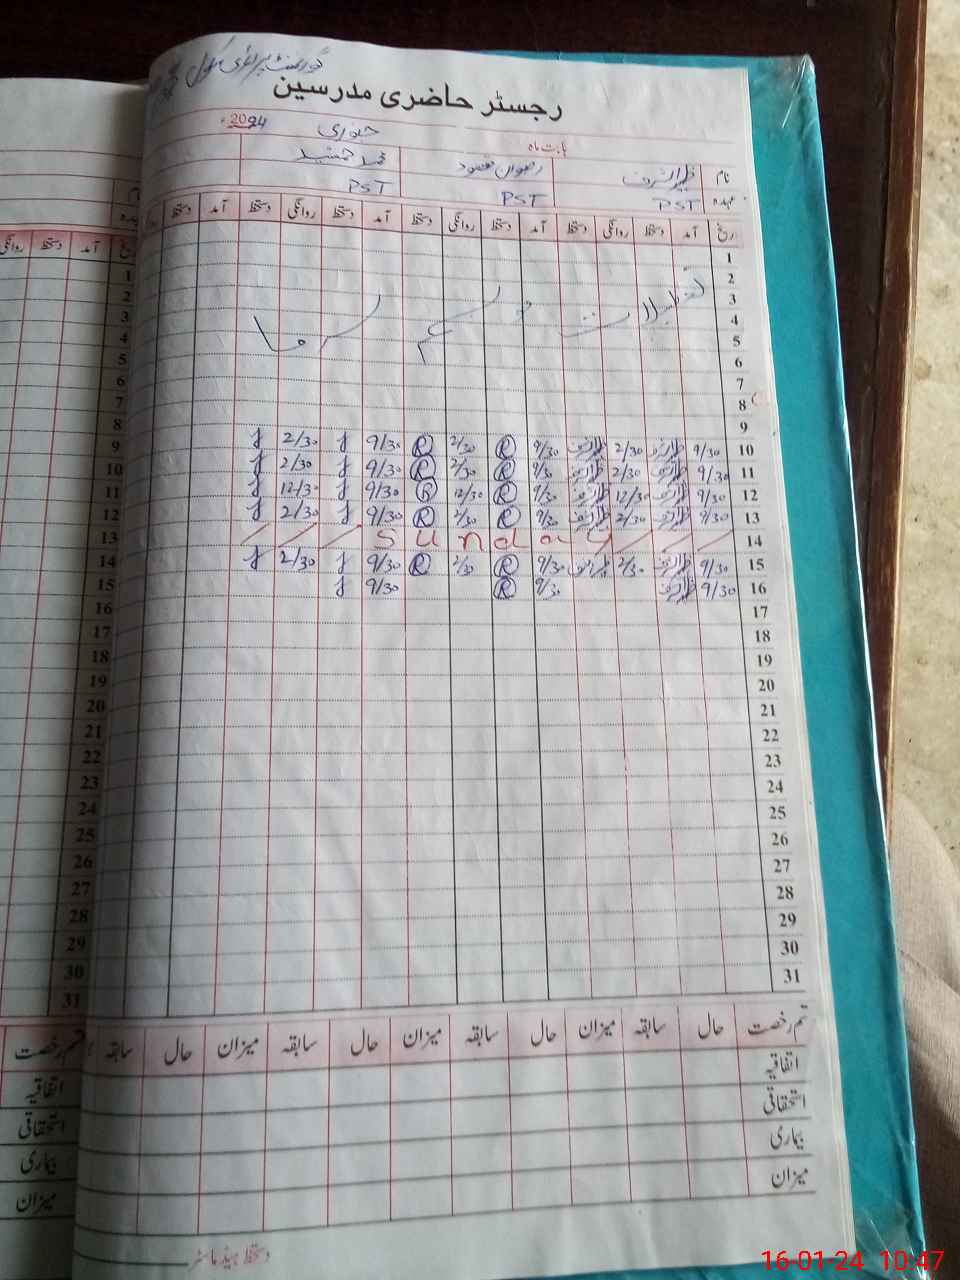 گورنمنٹ پرائمری سکول
رجسٹر حاضری مدرسین
بابت ماہ جنوری 2024ء
نام ظہیر اشرف رضوان مقصود محمد جمشید
عہدہ PST PST PST
تاریخ آمد دستخط روانگی دستخط آمد دستخط روانگی دستخط آمد دستخط روانگی دستخط آمد دستخط
1
2
3
4
5
6
7
8
9
تعطیلات موسم سرما
10 9/30 2/30 9/30 R 2/30 R 9/30 J 2/30 J
11 9/30 2/30 9/30 R 2/30 R 9/30 J 2/30 J
12 9/30 12/30 9/30 R 12/30 R 9/30 J 12/30 J
13 9/30 2/30 9/30 R 2/30 R 9/30 J 2/30 J
14 Sunday
15 9/30 2/30 9/30 R 2/30 R 9/30 J 2/30 J
16 9/30 9/30 R 9/30 J
17
18
19
20
21
22
23
24
25
26
27
28
29
30
31
قسم رخصت حال سابقہ میزان حال سابقہ میزان حال سابقہ میزان حال سابقہ
اتفاقیہ
استحقاقی
بیماری
میزان
دستخط ہیڈ ماسٹر
آمد دستخط روانگی
1
2
3
4
5
6
7
8
9
10
11
12
13
14
15
16
17
18
19
20
21
22
23
24
25
26
27
28
29
30
31
قسم رخصت
اتفاقیہ
استحقاقی
بیماری
میزان
16-01-24 10:47